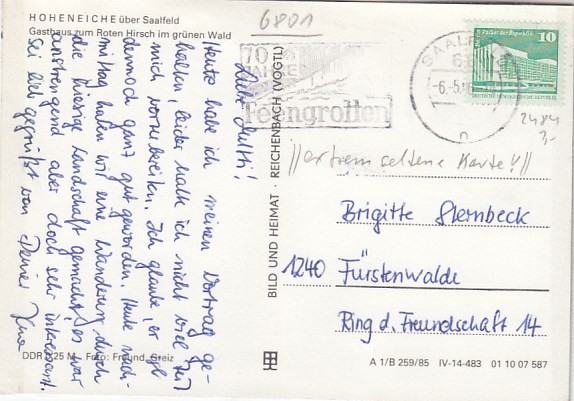 6801
HOHENEICHE über Saalfeld
Gasthaus zum Roten Hirsch im grünen Wald
Heute habe ich meinen Vortrag ge-
halten, leider hatte ich nicht viel Zeit
mich vorzubereiten. Ich glaube, er ist
dennoch ganz gut geworden. Heute nach-
mittag haben wir eine Wanderung durch
die hiesige Landschaft gemacht, es war
anstrengend aber doch sehr interessant.
Sei lieb gegrüßt von Deiner
DDR 0,25 M Foto: Freund, Greiz
BILD UND HEIMAT · REICHENBACH (VOGTL)
70
JAHRE
Feengrotten
SAALFELD
68
-6.-5.
n
Palast der Republik
10
DEUTSCHE DEMOKRATISCHE REPUBLIK
2484
3,-
//extrem seltene Karte!!//
Brigitte Sternbeck
1240 Fürstenwalde
Ring d. Freundschaft 14
A 1/B 259/85 IV-14-483 01 10 07 587